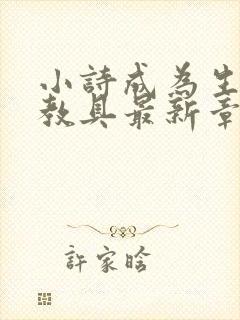 小詩成為生
教具最新章
許家晗